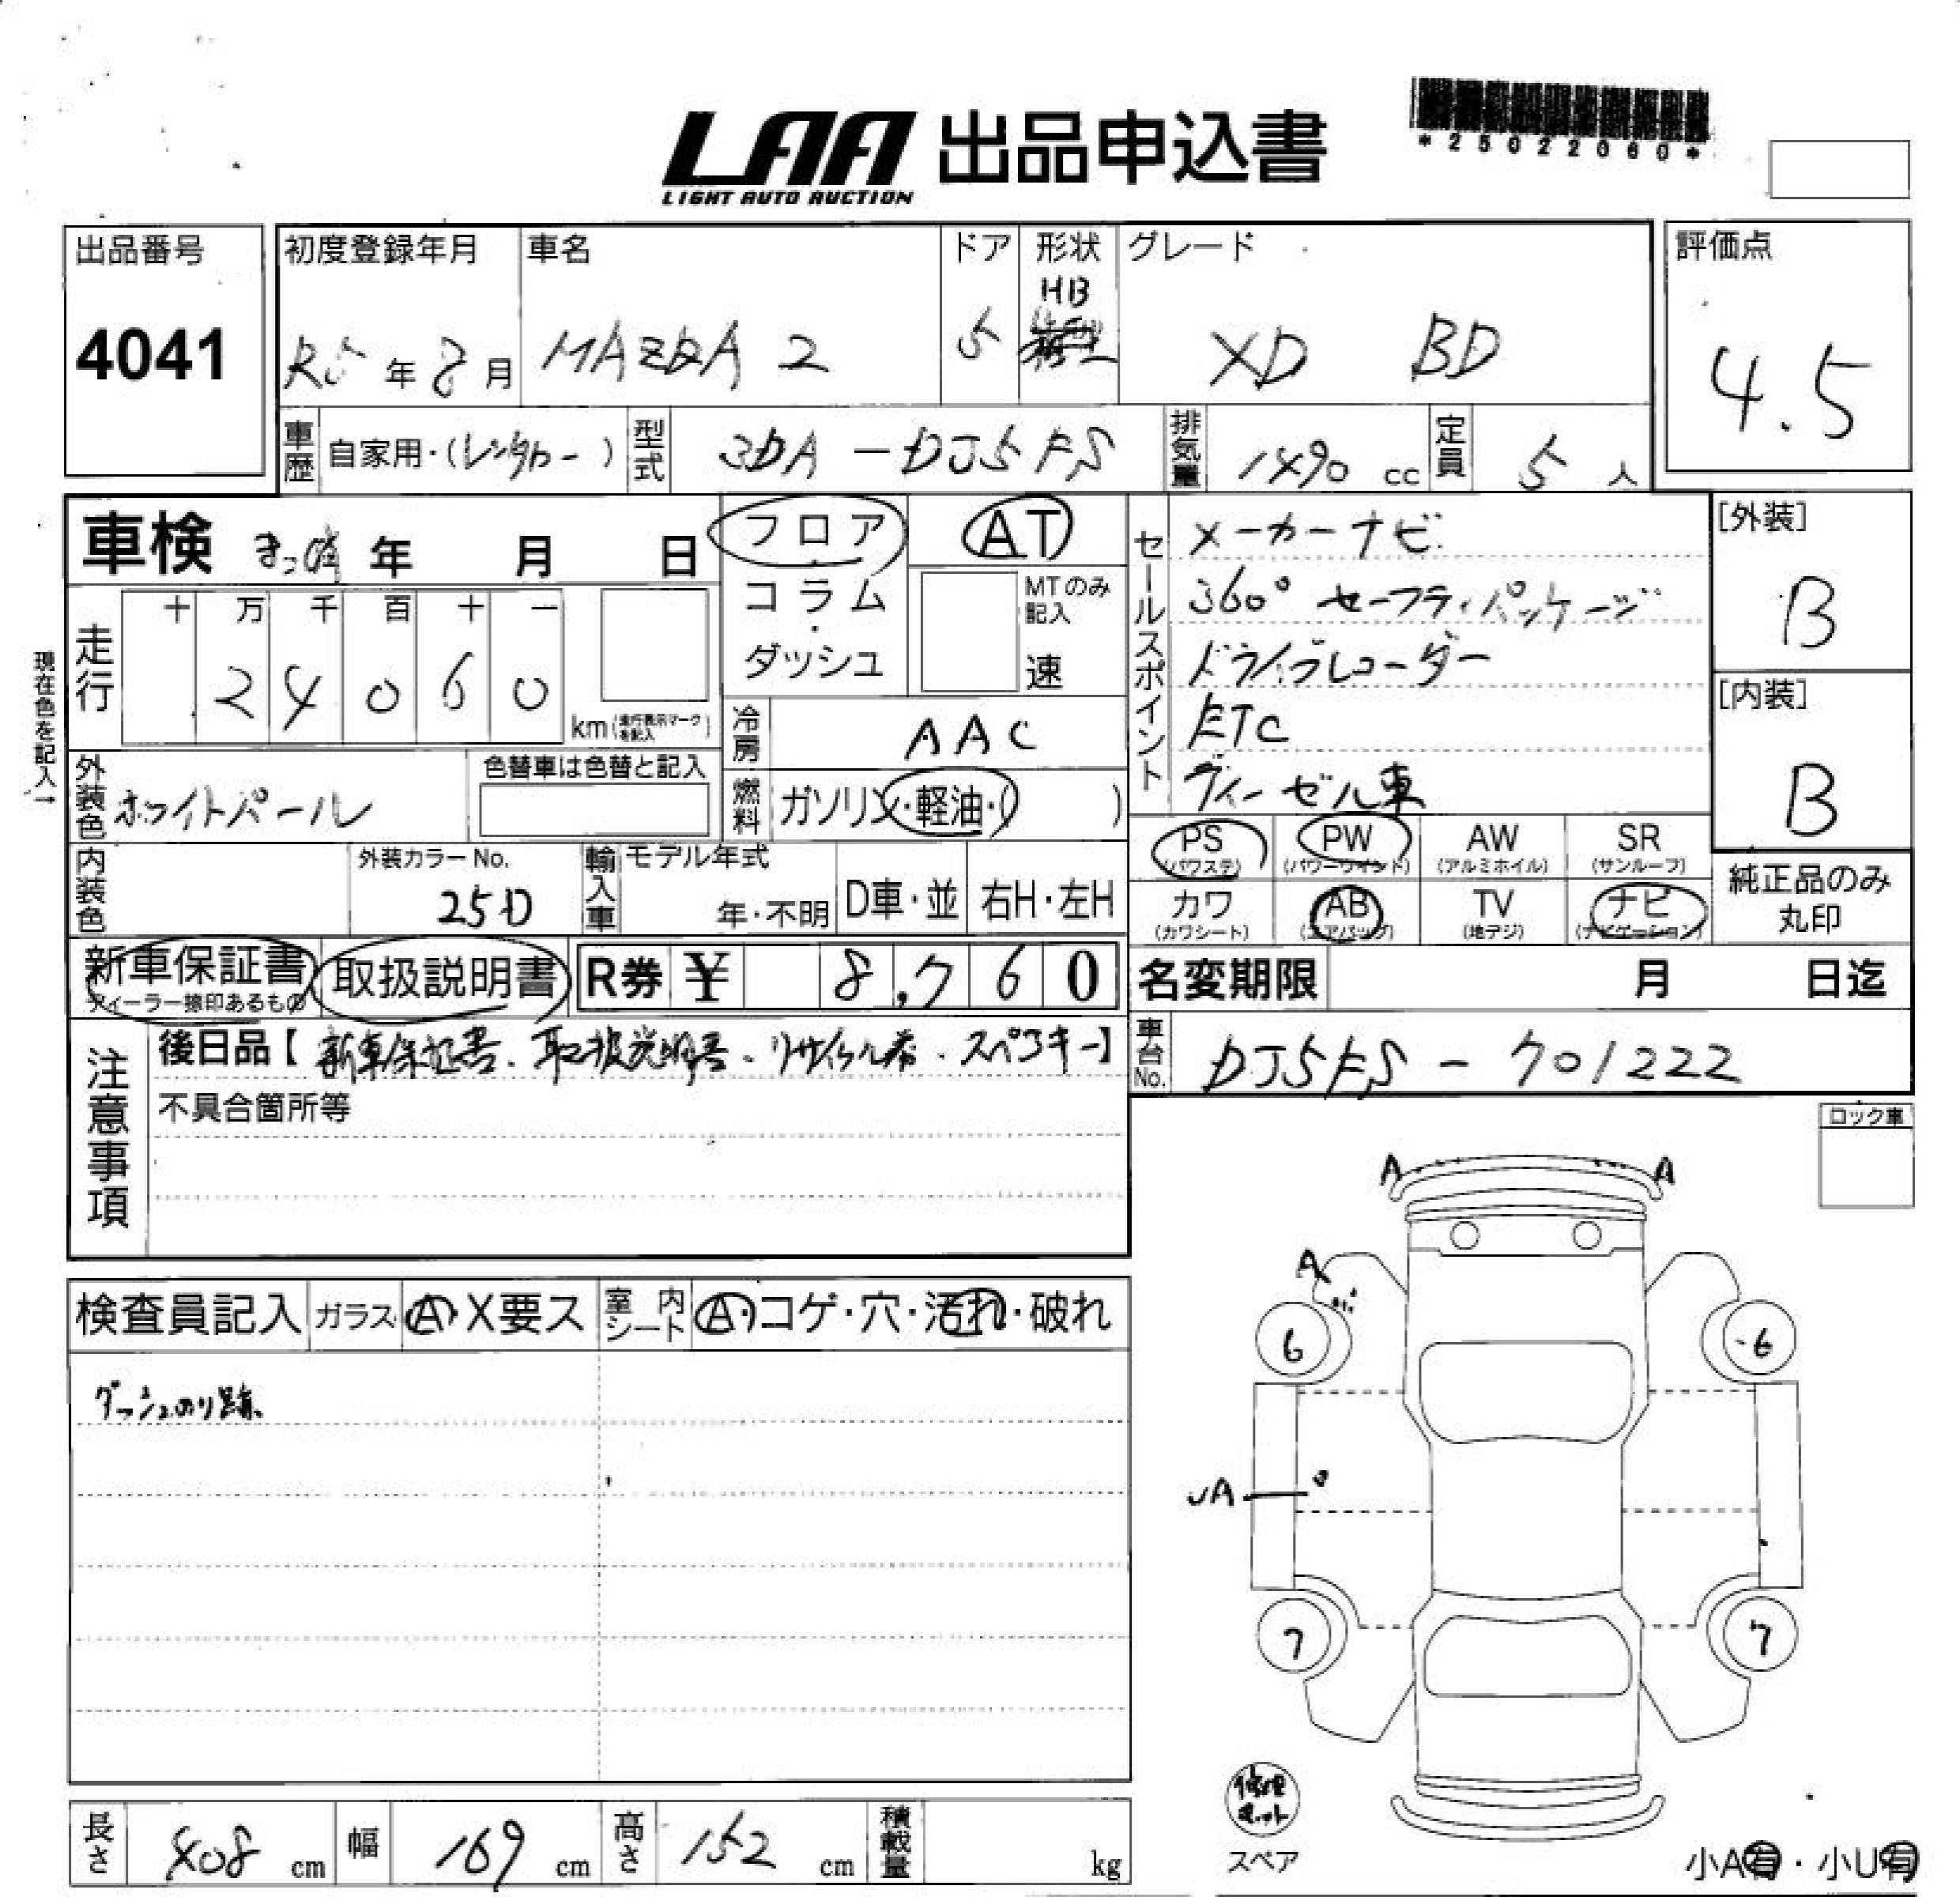 LAA 出品申込書
LIGHT AUTO AUCTION
*25022060*
出品番号
4041
初度登録年月
R5年8月
車名
MAZDA 2
ドア
5
形状
HB
グレード
XD BD
評価点
4.5
車歴
自家用・(レンタカー)
型式
3DA-DJ5FS
排気量
1490 cc
定員
5 人
車検 まっ消 年 月 日
フロア
コラム
・
ダッシュ
AT
MTのみ
記入
速
現在色を記入→
走行
十 万 千 百 十 一
2 4 0 6 0
km(走行表示マークを記入)
冷房
AAC
外装色
ホワイトパール
色替車は色替と記入
燃料
ガソリン・軽油・( )
内装色
外装カラーNo.
25D
輸入車
モデル年式
年・不明
D車・並
右H・左H
セールスポイント
メーカーナビ
360°セーフティパッケージ
ドライブレコーダー
ETC
ディーゼル車
[外装]
B
[内装]
B
PS
(パワステ)
PW
(パワーウインド)
AW
(アルミホイル)
SR
(サンルーフ)
カワ
(カワシート)
AB
(エアバッグ)
TV
(地デジ)
ナビ
(ナビゲーション)
純正品のみ
丸印
新車保証書
ディーラー捺印あるもの
取扱説明書
R券 ¥ 8,760
名変期限 月 日迄
注意事項
後日品【新車保証書、取扱説明書、リサイクル券、スペアキー】
不具合箇所等
車台No.
DJ5FS-701222
ロック車
検査員記入
ガラス
A・X要ス
室内
シート
A・コゲ・穴・汚れ・破れ
ダッシュのり跡
A
A
A
6
6
UA
7
7
修理キット
スペア
長さ
408 cm
幅
169 cm
高さ
152 cm
積載量
kg
小A有・小U有